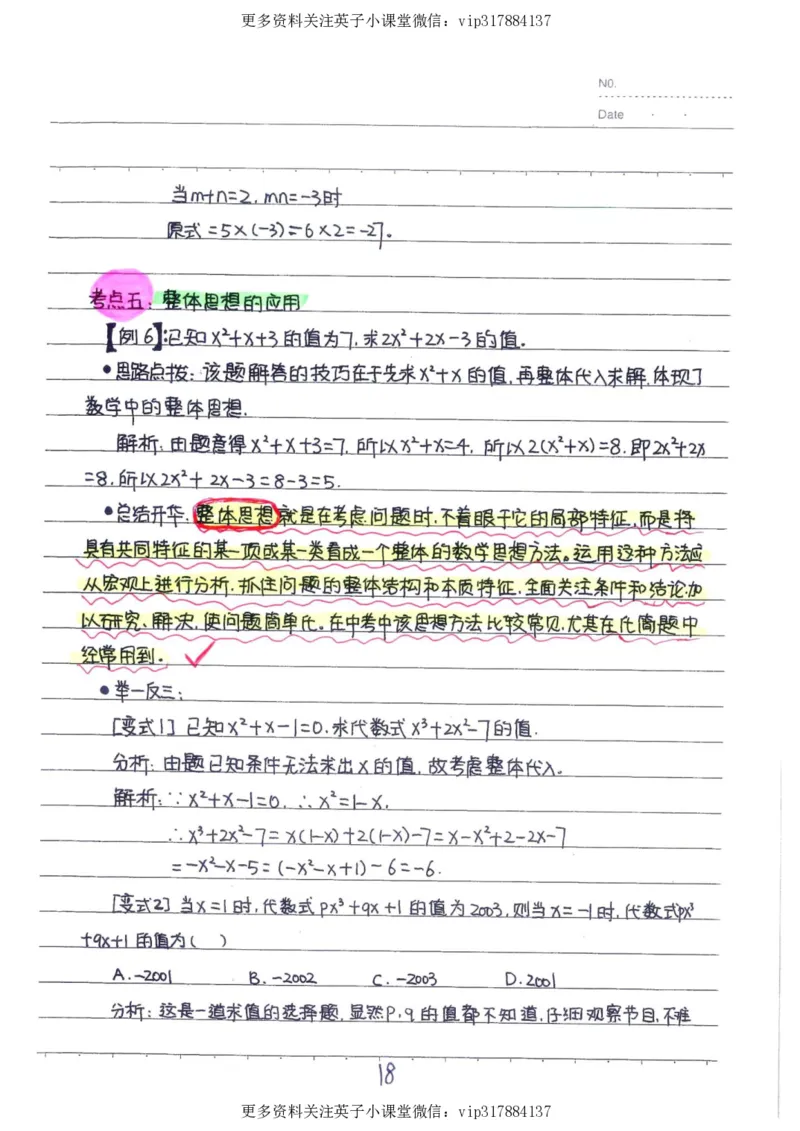 更多资料关注英子小课堂微信：vip317884137
NO.
Date · ·
当m+n=2, mn=-3时
原式=5×(-3)-6×2=-27。
考点五：整体思想的应用
【例6】:已知x²+x+3的值为7,求2x²+2x-3的值。
•思路点拨：该题解答的技巧在于先求x²+x的值,再整体代入求解,体现了
数学中的整体思想.
解析:由题意得x²+x+3=7,所以x²+x=4, 所以2(x²+x)=8.即2x²+2x
=8,所以2x²+2x-3=8-3=5.
•总结升华:整体思想就是在考虑问题时,不着眼于它的局部特征,而是将
具有共同特征的某一项或某一类看成一个整体的数学思想方法。运用这种方法应
从宏观上进行分析,抓住问题的整体结构和本质特征,全面关注条件和结论,加
以研究、解决,使问题简单化。在中考中该思想方法比较常见,尤其在化简题中
经常用到。
•举一反三:
[变式1] 已知x²+x-1=0.求代数式x³+2x²-7的值.
分析:由题已知条件无法求出x的值,故考虑整体代入。
解析:∵x²+x-1=0, ∴x²=1-x,
∴x³+2x²-7=x(1-x)+2(1-x)-7=x-x²+2-2x-7
=-x²-x-5=(-x²-x+1)-6=-6.
[变式2]当x=1时,代数式px³+qx+1的值为2003,则当x=-1时,代数式px³
+qx+1的值为( )
A.-2001 B.-2002 C.-2003 D.2001
分析:这是一道求值的选择题,显然p,q的值都不知道,仔细观察节目,不难
18
更多资料关注英子小课堂微信：vip317884137